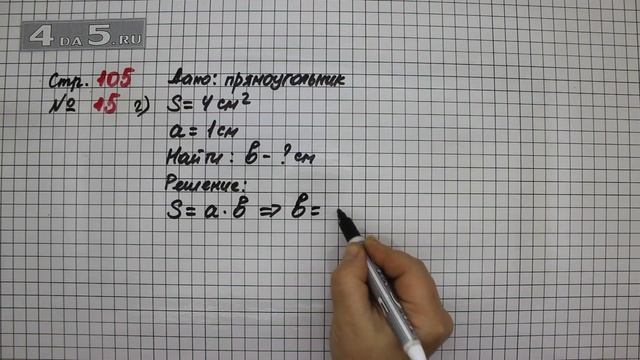 4 DA 5.RU
Стр. 105 Дано: прямоугольник
№ 15 г) S = 4 см²
a = 1 см
Найти: b - ? см
Решение:
S = a · b ⇒ b =